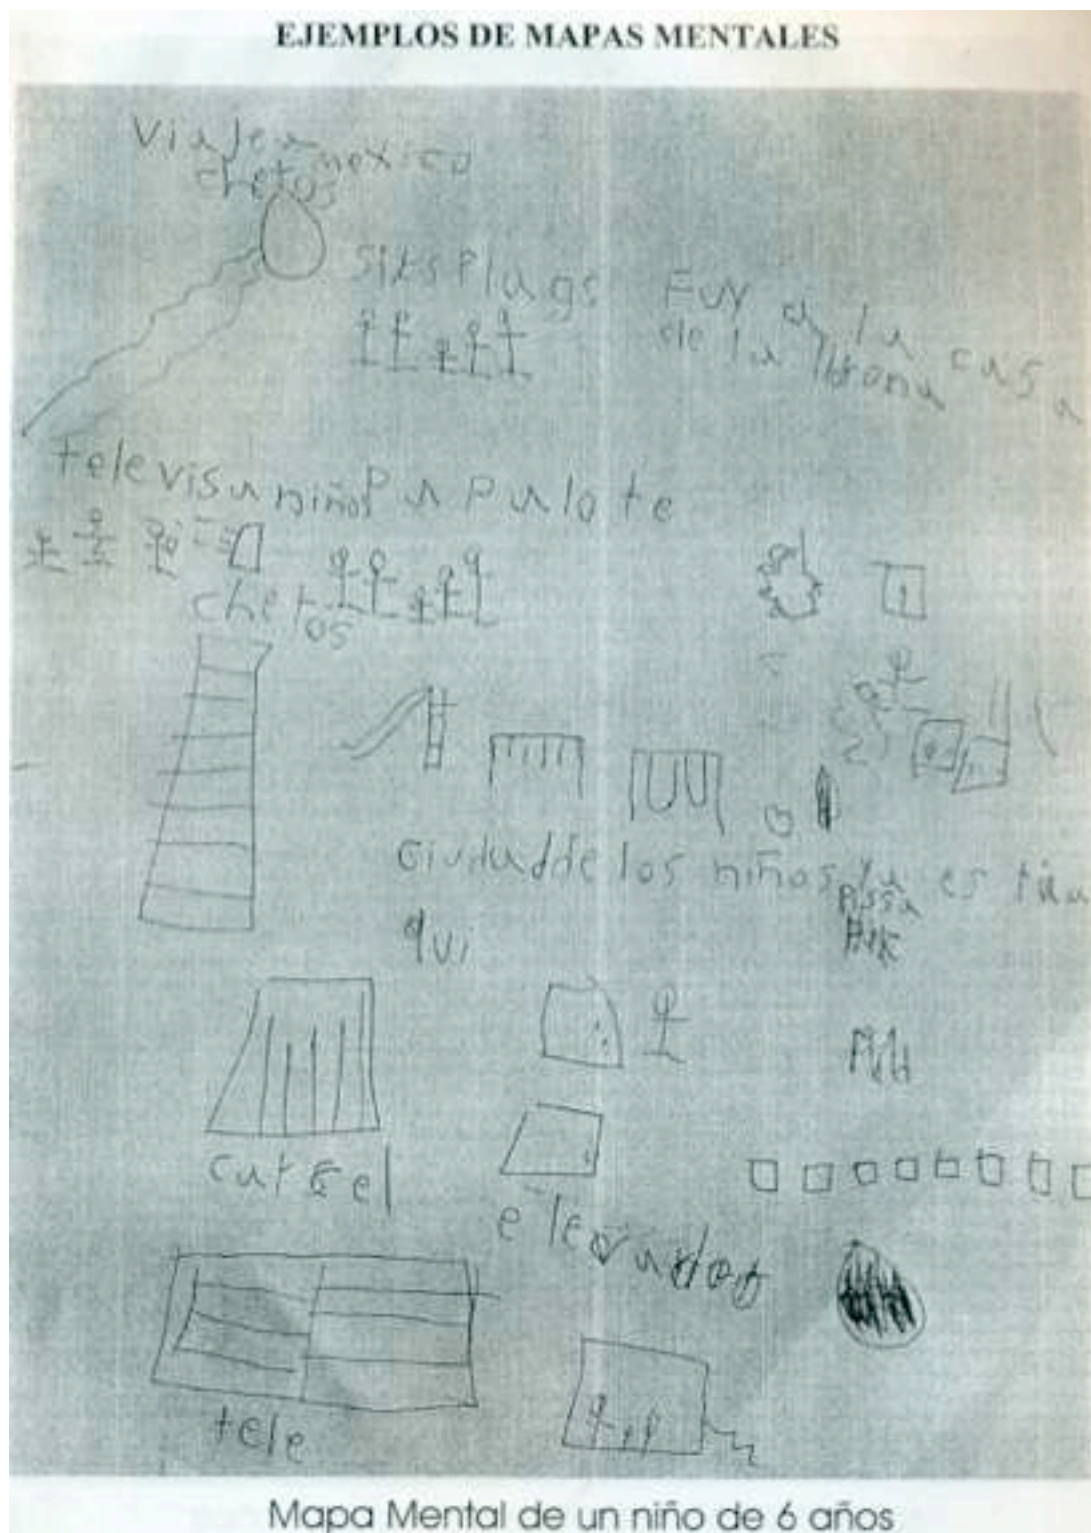 EJEMPLOS DE MAPAS MENTALES
Viaje a mexico
chetos
SiksPlags
Fuy a la casa
de la llorona
televisa niños Papalote
chetos
Ciudad de los niños ya esta
aqui
Pissa
Hut
carcel
elevador
tele
Mapa Mental de un niño de 6 años